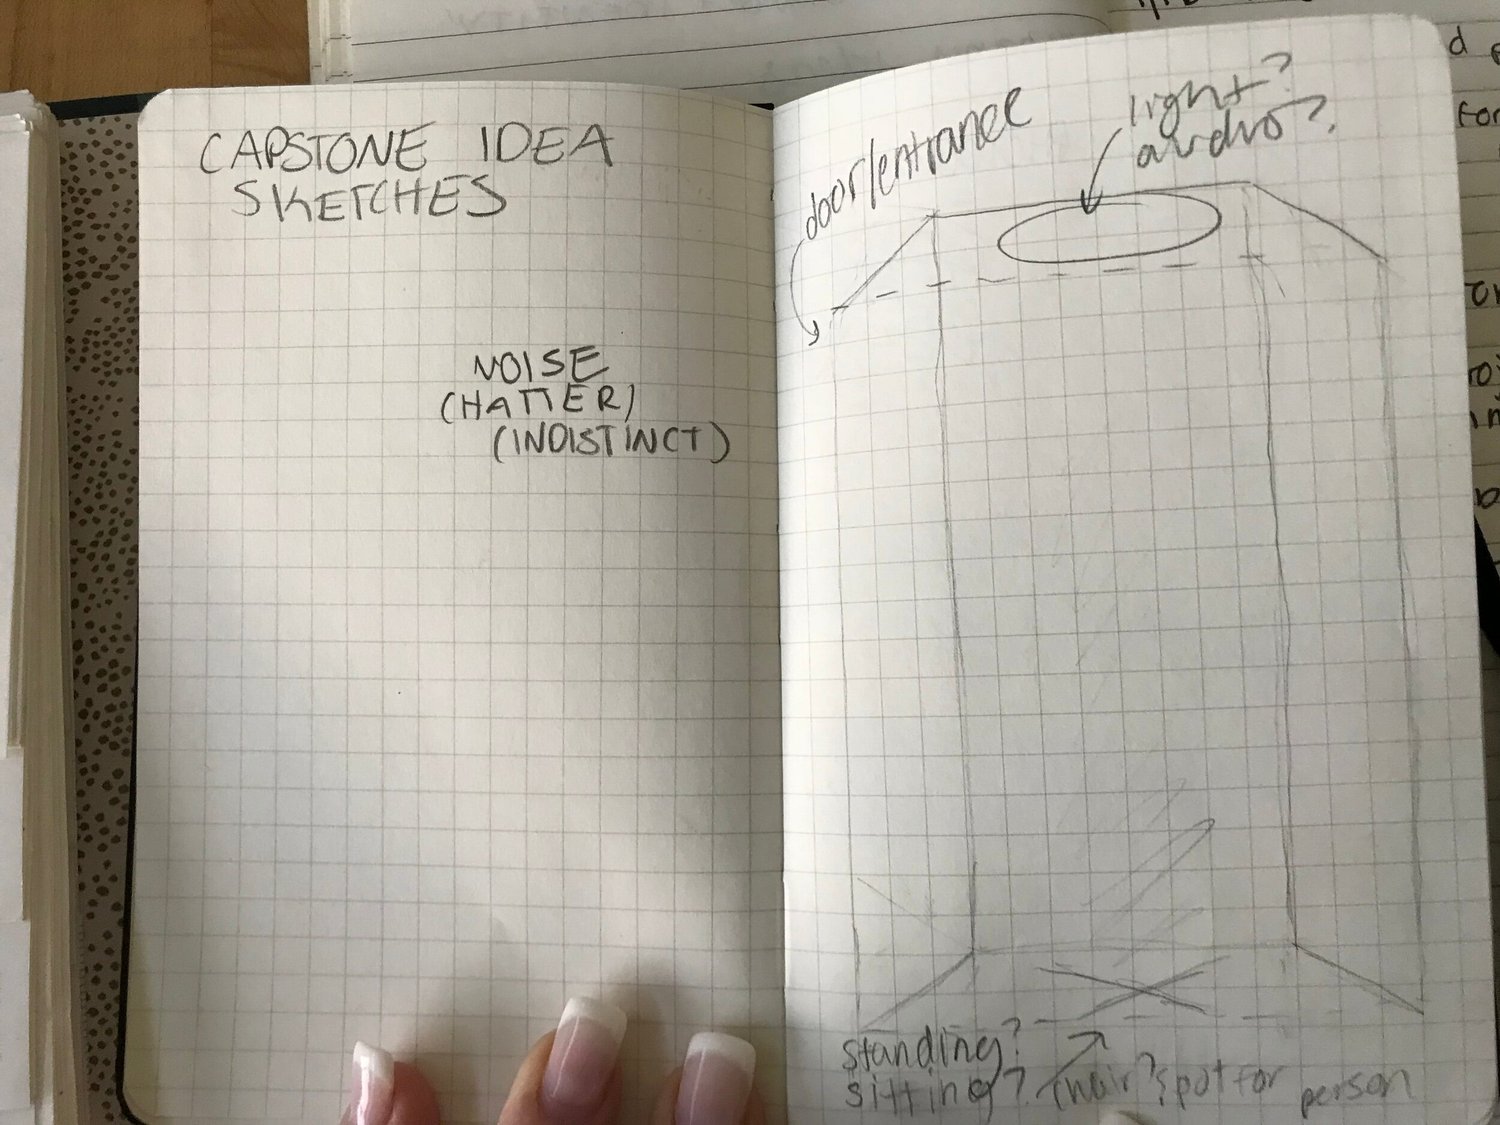 CAPSTONE IDEA
SKETCHES
NOISE
(HATTER)
(INDISTINCT)
door/entrance
light?
audio?
standing?
sitting? chair? spot for person